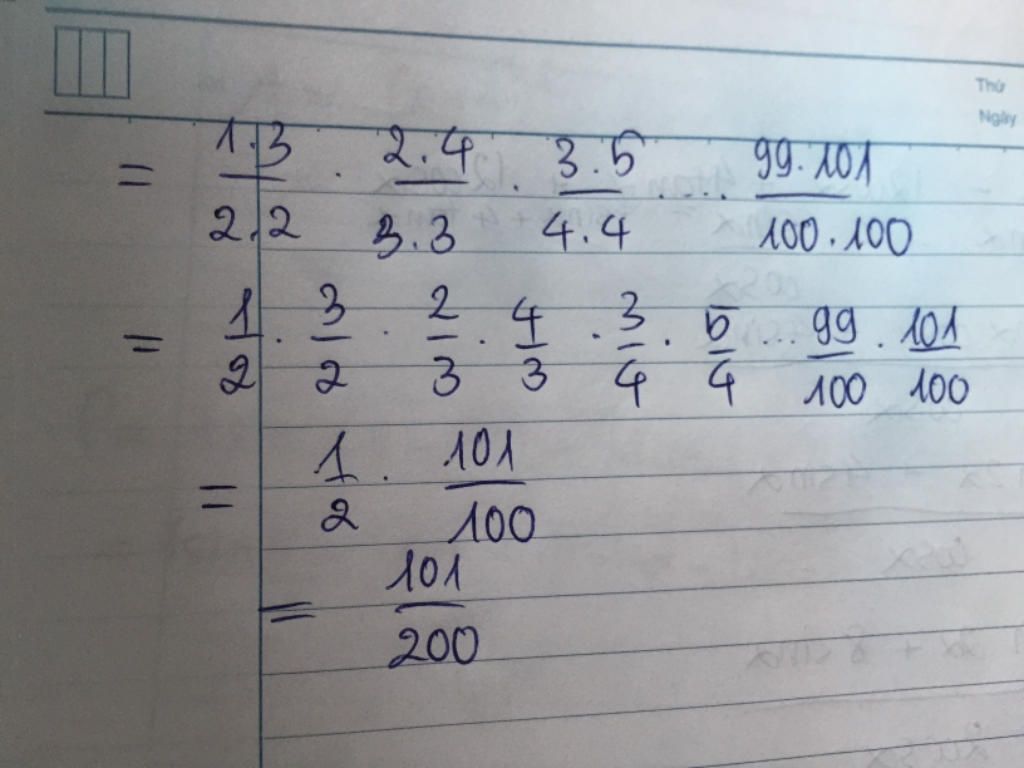 Thứ
Ngày
= 1.3/2.2 . 2.4/3.3 . 3.5/4.4 ..... 99.101/100.100
= 1/2 . 3/2 . 2/3 . 4/3 . 3/4 . 5/4 ... 99/100 . 101/100
= 1/2 . 101/100
= 101/200